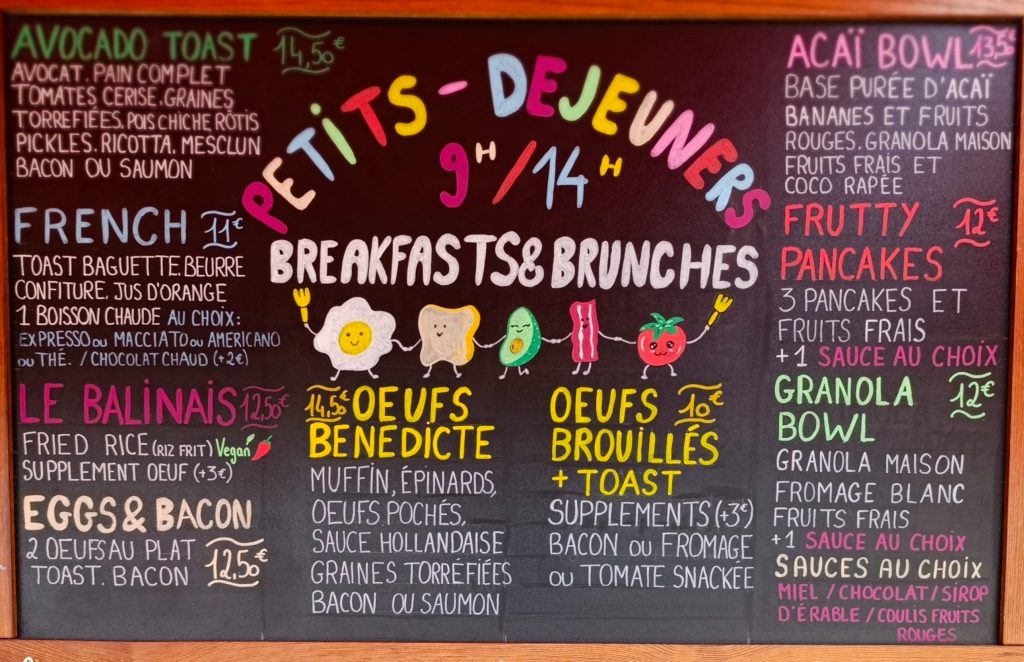 AVOCADO TOAST 14,50€
AVOCAT. PAIN COMPLET
TOMATES CERISE. GRAINES
TORREFIÉES. POIS CHICHE RÔTIS
PICKLES. RICOTTA. MESCLUN
BACON OU SAUMON
FRENCH 11€
TOAST BAGUETTE. BEURRE
CONFITURE. JUS D'ORANGE
1 BOISSON CHAUDE AU CHOIX:
EXPRESSO OU MACCIATO OU AMERICANO
OU THÉ. / CHOCOLAT CHAUD (+2€)
LE BALINAIS 12,50€
FRIED RICE (RIZ FRIT) Vegan
SUPPLEMENT OEUF (+3€)
EGGS & BACON
2 OEUFS AU PLAT 12,50€
TOAST. BACON
PETITS-DEJEUNERS
9H/14H
BREAKFASTS & BRUNCHES
14,50€ OEUFS
BENEDICTE
MUFFIN, ÉPINARDS,
OEUFS POCHÉS,
SAUCE HOLLANDAISE
GRAINES TORRÉFIÉES
BACON OU SAUMON
OEUFS 10€
BROUILLÉS
+ TOAST
SUPPLEMENTS (+3€)
BACON OU FROMAGE
OU TOMATE SNACKÉE
ACAÏ BOWL 13,5€
BASE PURÉE D'ACAÏ
BANANES ET FRUITS
ROUGES. GRANOLA MAISON
FRUITS FRAIS ET
COCO RAPÉE
FRUTTY 12€
PANCAKES
3 PANCAKES ET
FRUITS FRAIS
+1 SAUCE AU CHOIX
GRANOLA 12€
BOWL
GRANOLA MAISON
FROMAGE BLANC
FRUITS FRAIS
+1 SAUCE AU CHOIX
SAUCES AU CHOIX
MIEL / CHOCOLAT / SIROP
D'ÉRABLE / COULIS FRUITS
ROUGES